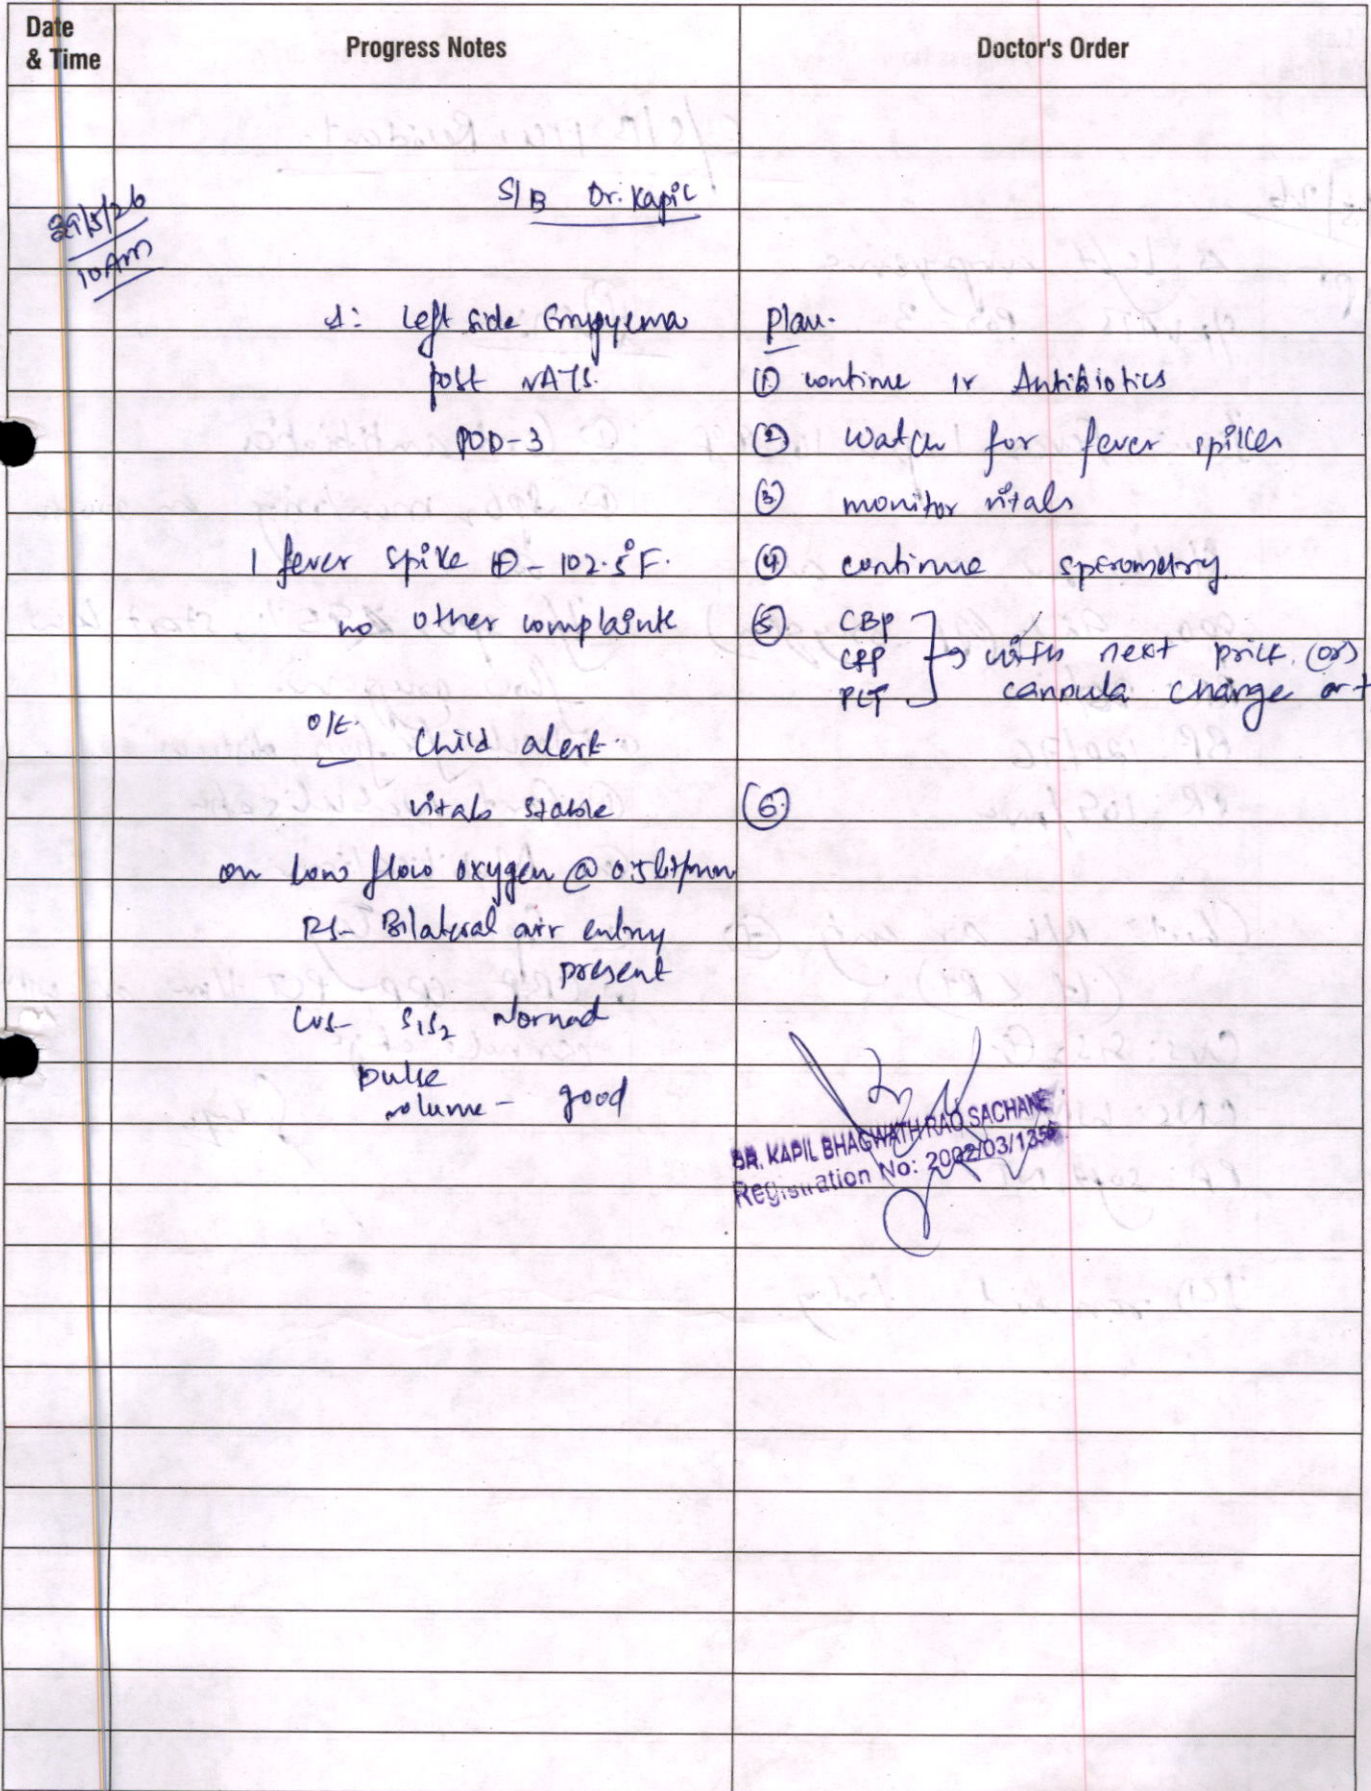 Date
& Time
Progress Notes
Doctor's Order
S/B Dr. Kapil
29/5/26
10Am
Δ: Left side Empyema
post VATS.
POD-3
1 fever spike ⊕ - 102.5°F.
no other complaints
O/E.
Child alert.
vitals stable
on low flow oxygen @ 0.5 lit/min
RS- Bilateral air entry
present
CVS- S1S2 Normal
pulse
volume - good
Plan.
① continue IV Antibiotics
② watch for fever spikes
③ monitor vitals
④ continue spirometry.
⑤ CBP
CRP → with next prick (or)
PCT cannula change
⑥
DR. KAPIL BHAGWATH RAO SACHANE
Registration No: 2002/03/1356